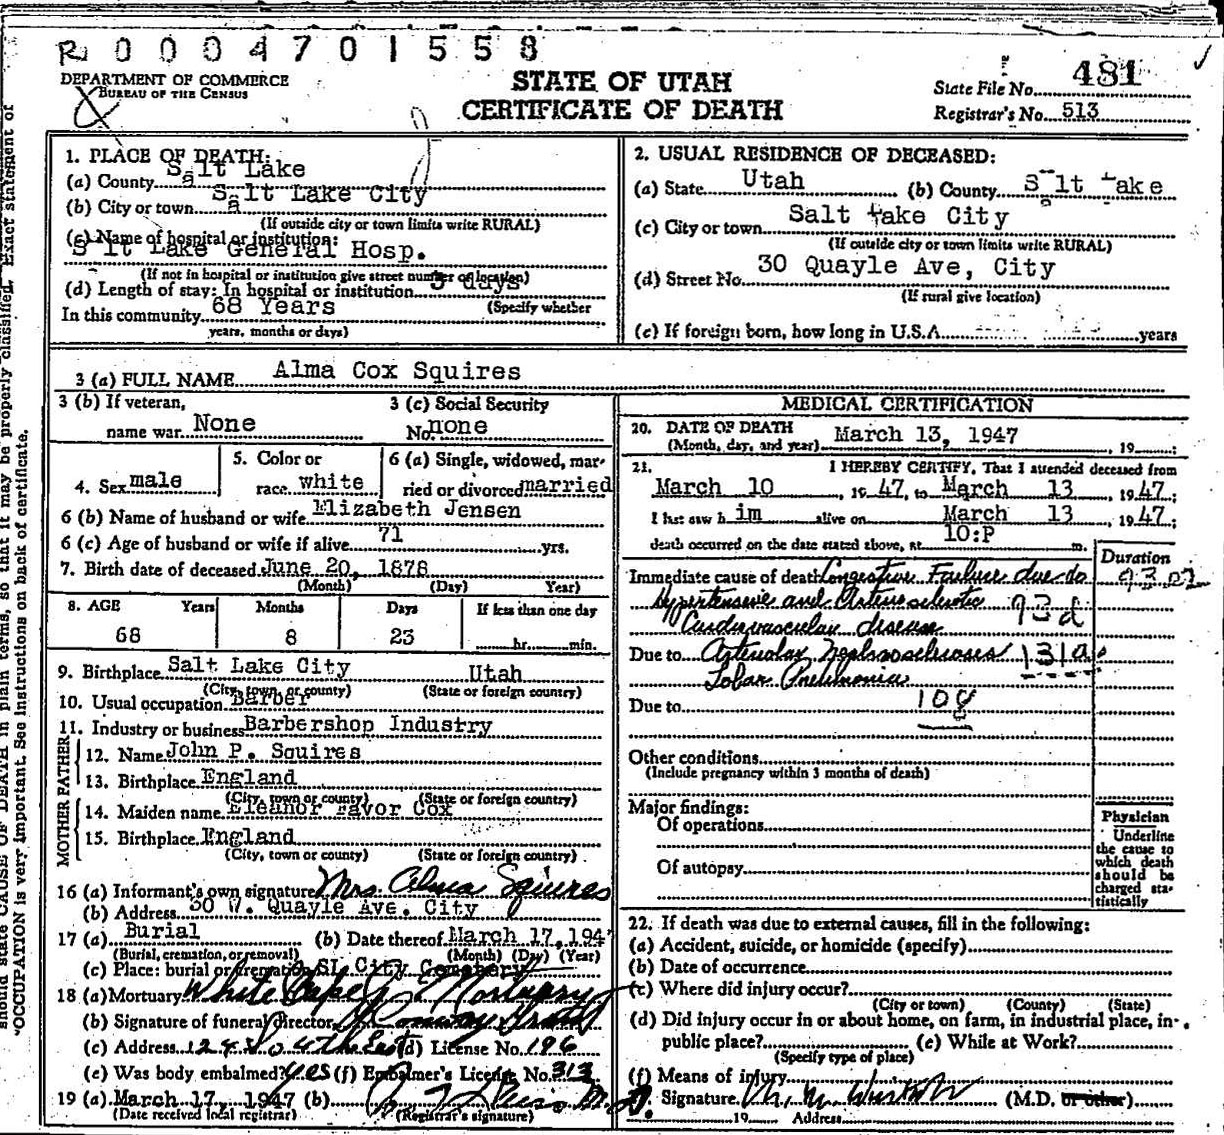 R 0 0 0 4 7 0 1 5 5 8
DEPARTMENT OF COMMERCE
BUREAU OF THE CENSUS
STATE OF UTAH
CERTIFICATE OF DEATH
State File No. 481
Registrar's No. 513
1. PLACE OF DEATH:
(a) County Salt Lake
(b) City or town Salt Lake City
(If outside city or town limits write RURAL)
(c) Name of hospital or institution:
Salt Lake General Hosp.
(If not in hospital or institution give street number or location)
(d) Length of stay: In hospital or institution 3 days
(Specify whether
In this community 68 Years
years, months or days)
2. USUAL RESIDENCE OF DECEASED:
(a) State Utah (b) County Salt Lake
(c) City or town Salt Lake City
(If outside city or town limits write RURAL)
(d) Street No. 30 Quayle Ave, City
(If rural give location)
(e) If foreign born, how long in U.S.A. years
3 (a) FULL NAME Alma Cox Squires
3 (b) If veteran, name war None
3 (c) Social Security No. none
4. Sex male
5. Color or race white
6 (a) Single, widowed, married or divorced married
6 (b) Name of husband or wife Elizabeth Jensen
6 (c) Age of husband or wife if alive 71 yrs.
7. Birth date of deceased June 20, 1878
(Month) (Day) Year)
8. AGE Years Months Days If less than one day
68 8 23 hr. min.
9. Birthplace Salt Lake City Utah
(City, town, or county) (State or foreign country)
10. Usual occupation Barber
11. Industry or business Barbershop Industry
FATHER
12. Name John P. Squires
13. Birthplace England
(City, town or county) (State or foreign country)
MOTHER
14. Maiden name Eleanor Favor Cox
15. Birthplace England
(City, town or county) (State or foreign country)
16 (a) Informant's own signature Mrs. Alma Squires
(b) Address 30 W. Quayle Ave. City
17 (a) Burial (b) Date thereof March 17, 194
(Burial, cremation, or removal) (Month) (Day) (Year)
(c) Place: burial or cremation SL City Cemetery
18 (a) Mortuary White Mortuary
(b) Signature of funeral director
(c) Address 124 So 4th East (d) License No. 196
(e) Was body embalmed? yes (f) Embalmer's License No. 313
19 (a) March 17, 1947 (b)
(Date received local registrar) (Registrar's signature)
MEDICAL CERTIFICATION
20. DATE OF DEATH
(Month, day, and year) March 13, 1947, 19
21. I HEREBY CERTIFY, That I attended deceased from
March 10, 1947, to March 13, 1947;
I last saw him alive on March 13, 1947;
death occurred on the date stated above, at 10:P m.
Duration
Immediate cause of death Congestive Failure due to
Hypertensive and Arteriosclerotic 93d
Cardiovascular disease
Due to Arteriolar Nephrosclerosis 131a
Lobar Pneumonia
Due to 108
Other conditions
(Include pregnancy within 3 months of death)
Major findings:
Of operations
Of autopsy
Physician
Underline
the cause to
which death
should be
charged sta-
tistically
22. If death was due to external causes, fill in the following:
(a) Accident, suicide, or homicide (specify)
(b) Date of occurrence
(c) Where did injury occur?
(City or town) (County) (State)
(d) Did injury occur in or about home, on farm, in industrial place, in-
public place? (e) While at Work?
(Specify type of place)
(f) Means of injury
Signature (M.D. or other)
19 Address
should state CAUSE OF DEATH in plain terms, so that it may be properly classified. Exact statement of
OCCUPATION is very important. See instructions on back of certificate.